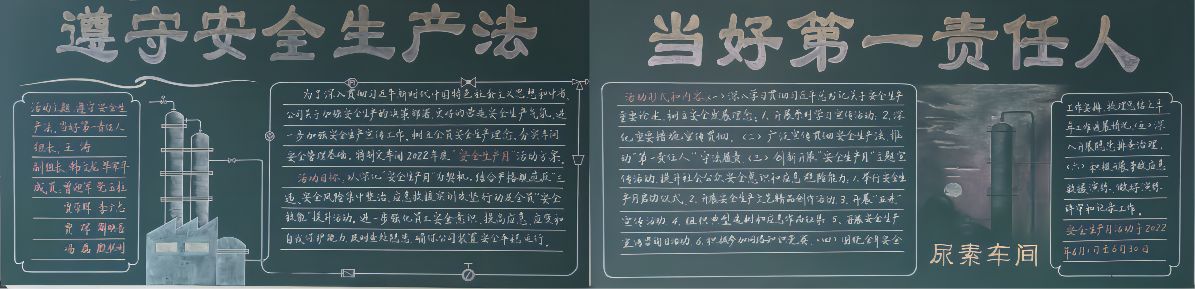 遵守安全生产法
当好第一责任人
活动主题:遵守安全生
产法,当好第一责任人
组长:王涛
副组长:韩文龙
成员:曾祖军
为了深入贯彻习近平新时代中国特色社会主义思想和中省、
公司关于加强安全生产的决策部署,更好的营造安全生产气氛,进
一步加强安全生产宣传工作,树立企业安全生产理念,夯实车间
安全管理基础,特制定车间2022年度“安全生产月”活动方案。
活动目标:以深化“安全生产月”为契机,结合严格规范反“三
违”安全风险集中整治、应急救援实训攻坚行动及全员“安全
技能”提升活动,进一步强化员工安全意识、提高应急、应变和
自我防护能力,及时查处隐患,确保公司装置安全平稳运行。
活动形式和内容:(一)深入学习贯彻习近平总书记关于安全生产
重要论述,树立安全发展理念:1.开展系列学习宣传活动,2.深
化重要措施宣传贯彻。(二)广泛宣传贯彻安全生产法,推
动“第一责任人”守法履责。(三)创新开展“安全生产月”主题宣
传活动,提升社会公众安全意识和应急避险能力:1.举行安全生
产月启动仪式,2.开展安全生产文艺精品创作活动,3.开展“五进”
宣传活动,4.组织典型案例和应急作品征集,5.开展安全生产
宣传咨询日活动,6.积极参加网络知识竞赛。(四)围绕全年安全
尿素车间
工作安排,梳理总结上半
年工作进展情况。(五)深
入开展隐患排查治理。
(六)积极开展事故应急
救援演练,做好演练
评审和记录工作。
安全生产月活动于2022
年6月1日至6月30日